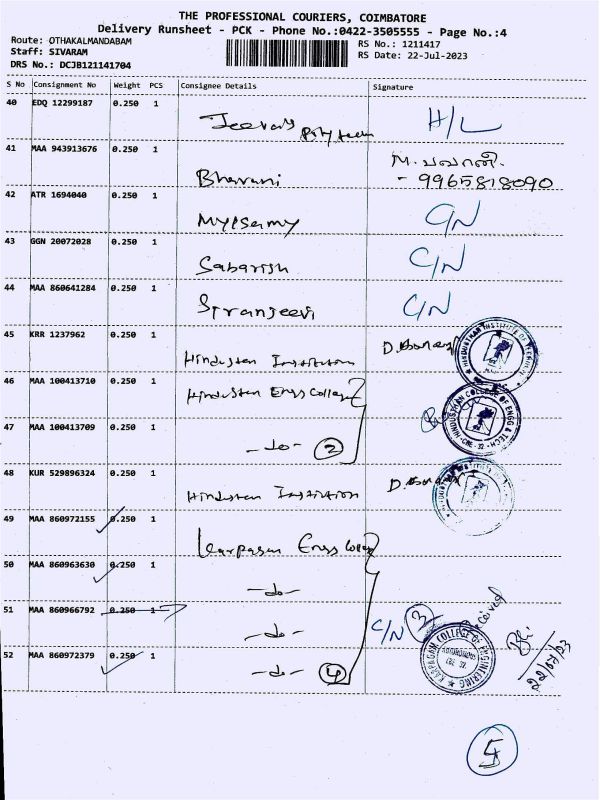 THE PROFESSIONAL COURIERS, COIMBATORE
Delivery Runsheet - PCK - Phone No.:0422-3505555 - Page No.:4
Route: OTHAKALMANDABAM
RS No.: 1211417
Staff: SIVARAM
RS Date: 22-Jul-2023
DRS No.: DCJB121141704
S No Consignment No Weight PCS Consignee Details Signature
40 EDQ 12299187 0.250 1
H/L
41 MAA 943913676 0.250 1 Bhavani
M. பவானி.
- 9965818090
42 ATR 1694040 0.250 1 Mylsamy
43 GGN 20072028 0.250 1 Sabarish C/N
44 MAA 860641284 0.250 1 C/N
45 KRR 1237962 0.250 1 Hindustan Institution
46 MAA 100413710 0.250 1 Hindustan Engg College
HINDUSTHAN COLLEGE OF ENGG & TECH
CBE - 32
47 MAA 100413709 0.250 1 -do- 2
48 KUR 529896324 0.250 1 Hindustan Institution
49 MAA 860972155 0.250 1 Karpagam Engg College
50 MAA 860963630 0.250 1 -do-
51 MAA 860966792 0.250 1 -do- C/N 3 Received
52 MAA 860972379 0.250 1 -do- 4
KARPAGAM COLLEGE OF ENGINEERING
22/07/23
5